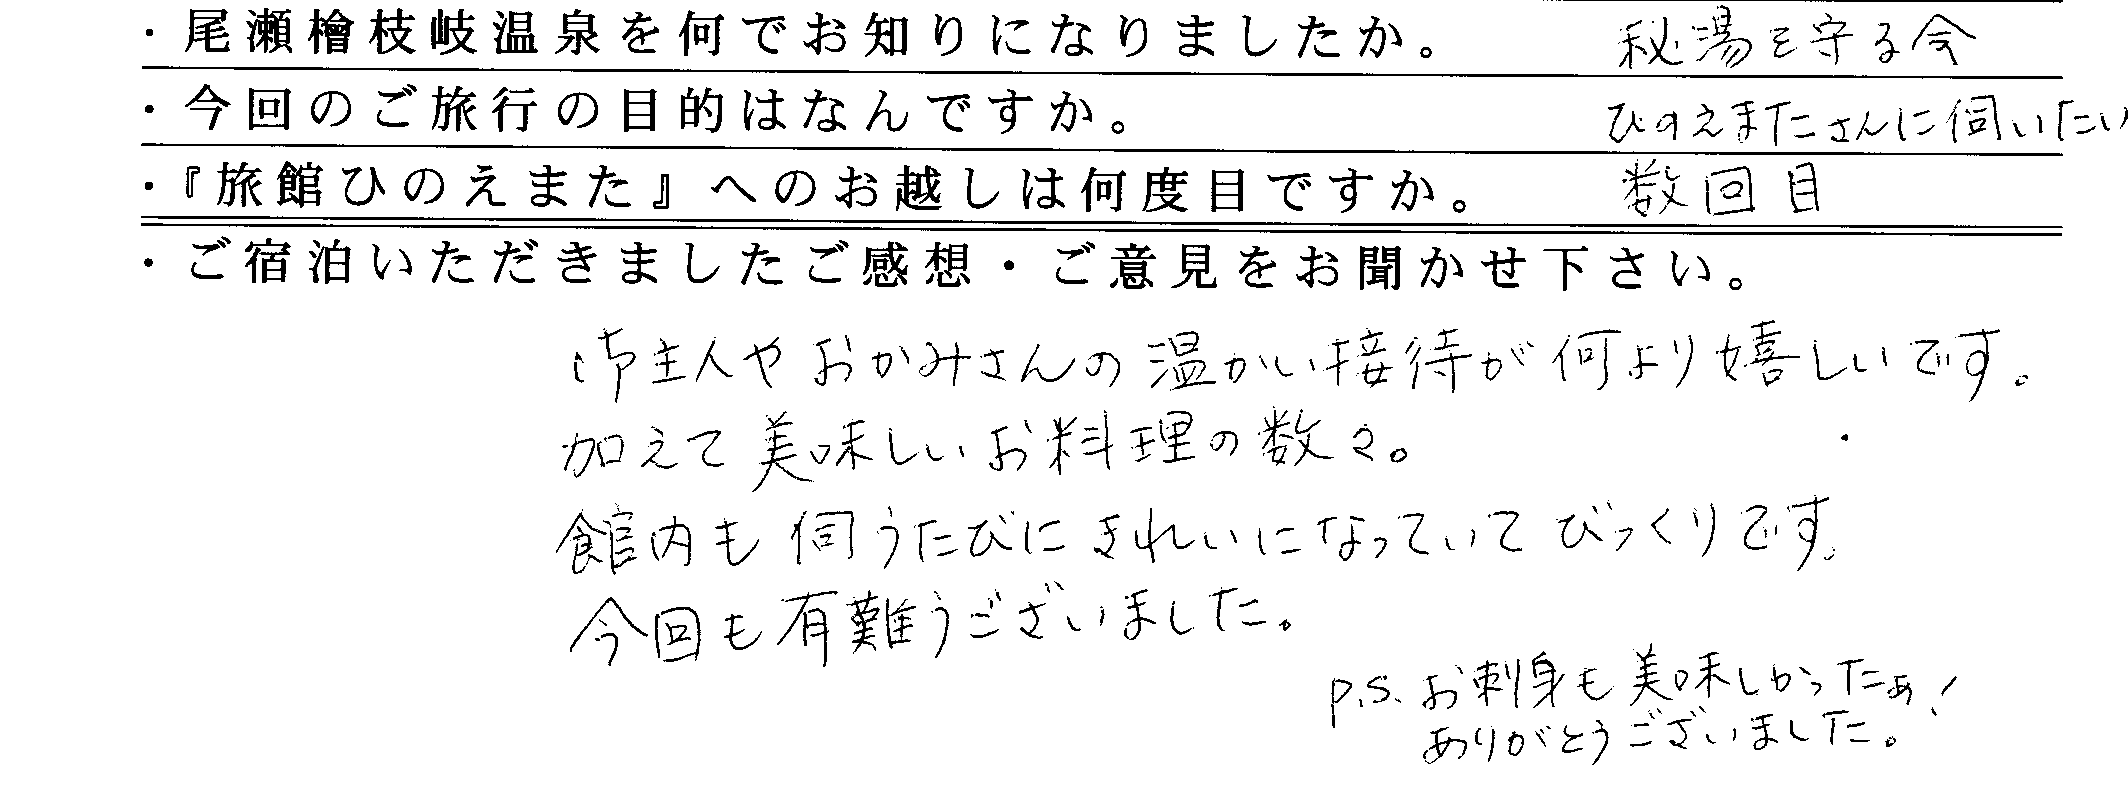 ・尾瀬檜枝岐温泉を何でお知りになりましたか。 秘湯を守る会
・今回のご旅行の目的はなんですか。 ひのえまたさんに伺いたい
・『旅館ひのえまた』へのお越しは何度目ですか。 数回目
・ご宿泊いただきましたご感想・ご意見をお聞かせ下さい。
御主人やおかみさんの温かい接待が何より嬉しいです。
加えて美味しいお料理の数々。
館内も伺うたびにきれいになっていてびっくりです。
今回も有難うございました。
P.S. お刺身も美味しかったぁ!
ありがとうございました。